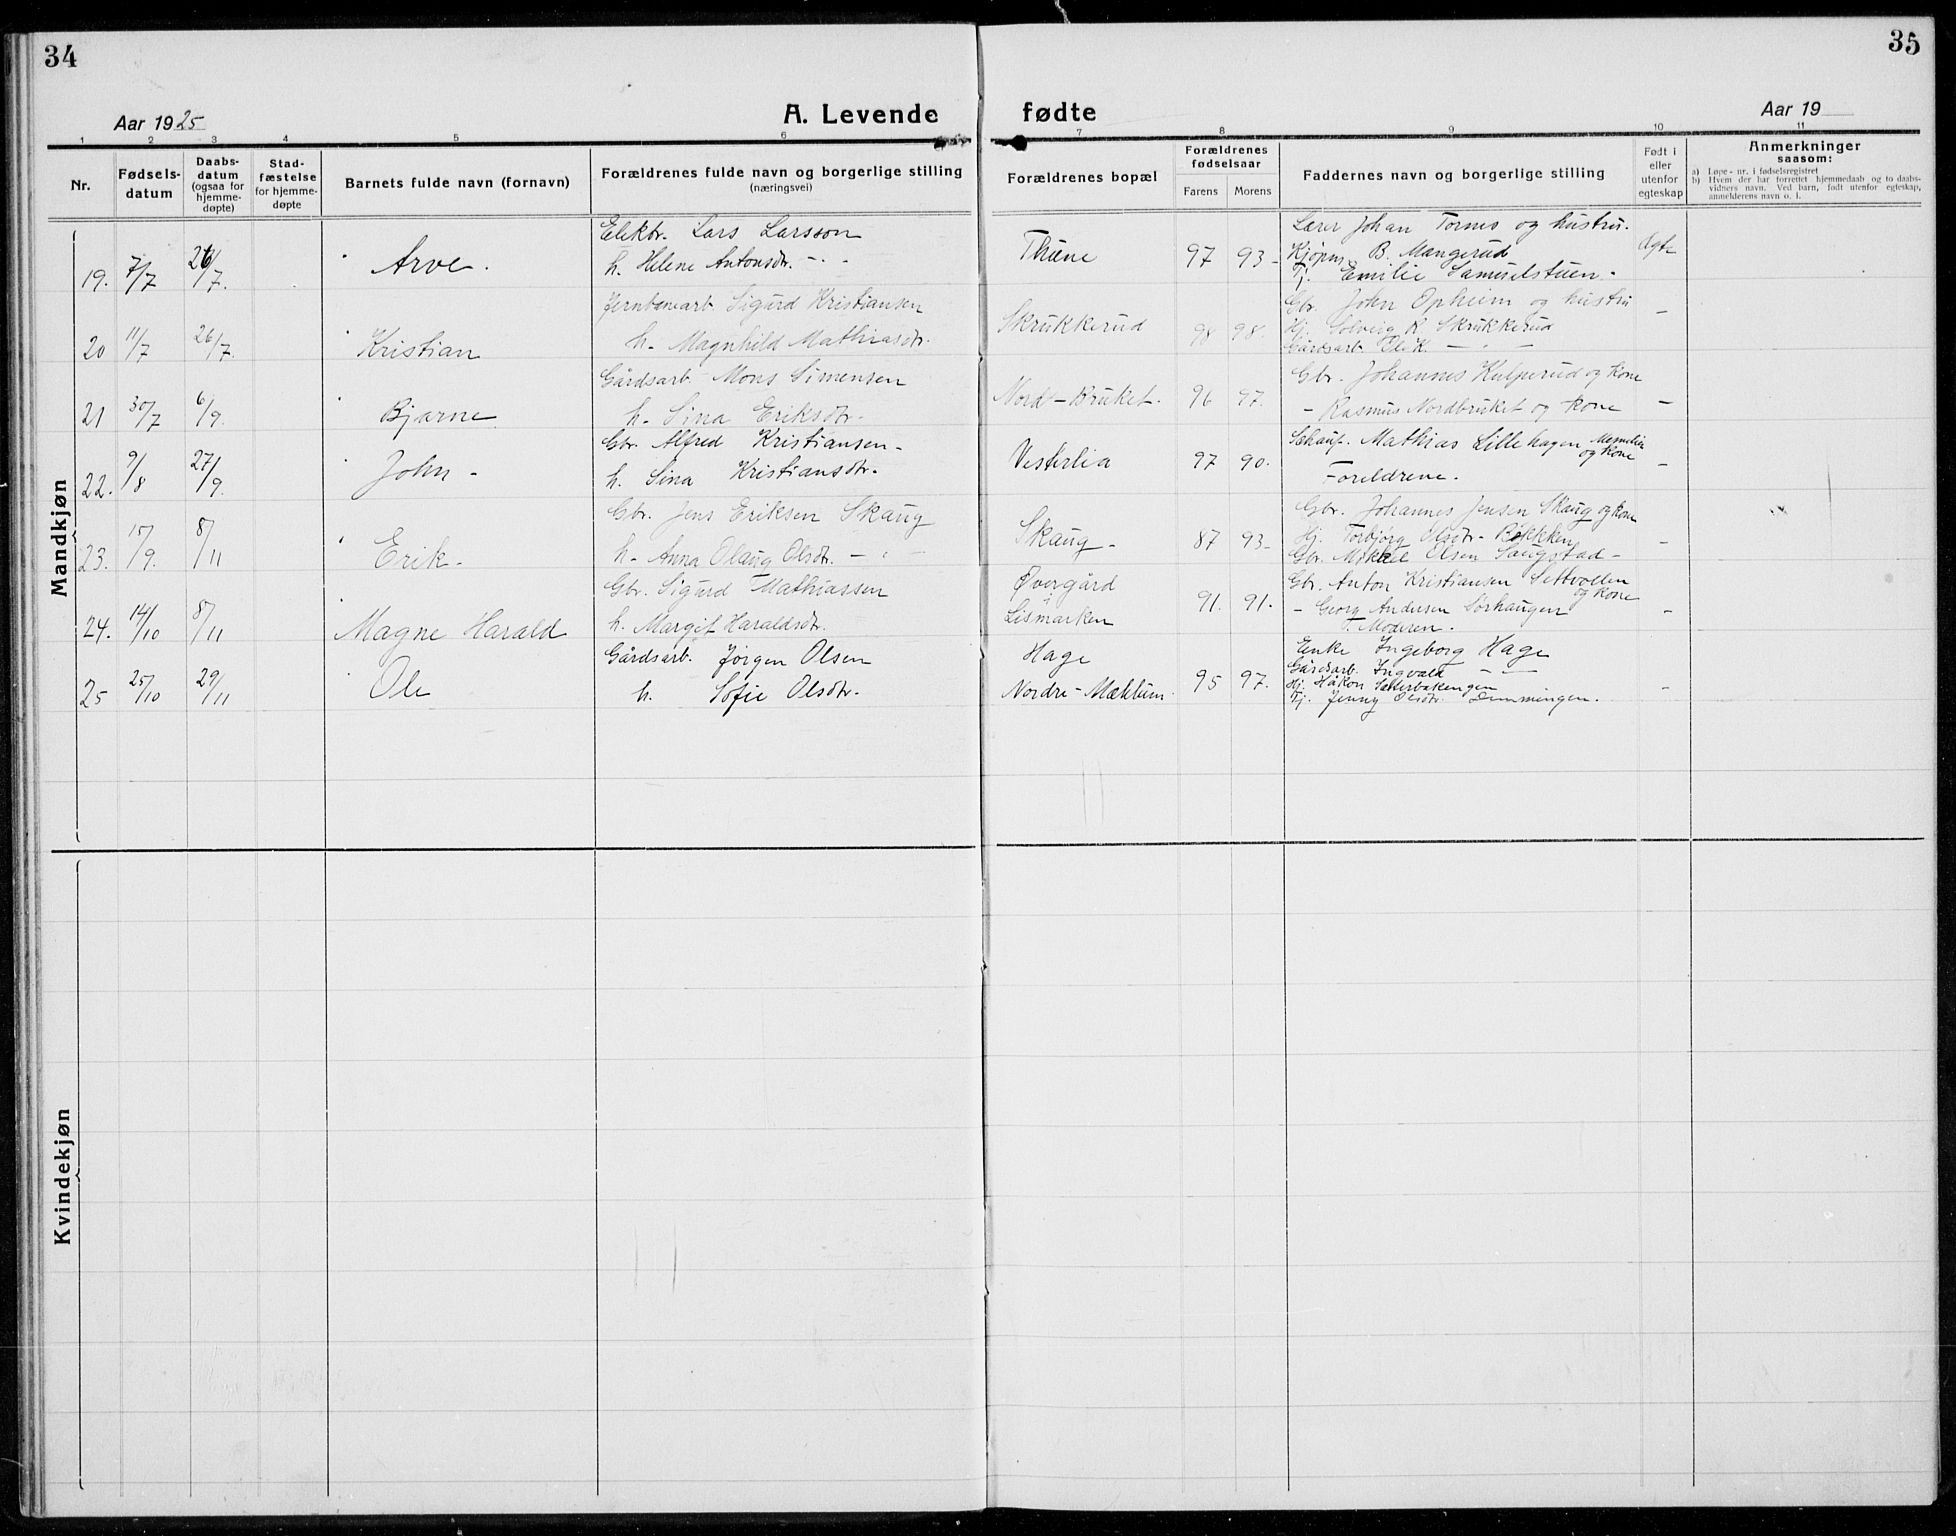 34
35
A. Levende
fødte
Aar 1925
Aar 19
1 2 3 4 5 6 7 8 9 10 11
Nr.
Fødsels-
datum
Daabs-
datum
(ogsaa for
hjemme-
døpte)
Stad-
fæstelse
for hjemme-
døpte
Barnets fulde navn (fornavn)
Forældrenes fulde navn og borgerlige stilling
(næringsvei)
Forældrenes bopæl
Forældrenes
fødselsaar
Farens Morens
Faddernes navn og borgerlige stilling
Født i
eller
utenfor
egteskap
Anmerkninger
saasom:
a) Løpe-nr. i fødselsregistret
b) Hvem der har forrettet hjemmedaab og to daabs-
vidners navn. Ved barn, født utenfor egteskap,
anmelderens navn o. l.
Mandkjøn
19. 7/7 26/7. Arve.
Elektr. Lars Larsson
h. Helene Antonsdr. - " -
Thune 97 93-
Lærer Johan Tormo og hustru.
Kjøpm. B. Mangerud
Tj. Emilie Samuelstuen.
Ægte
20 11/7 26/7. Kristian
Jernbanearb. Sigurd Kristiansen
h. Magnhild Mathiasdr.
Skrukkerud 98 98.
Gbr. John Opheim og hustru
Hj. Solveig K. Skrukkerud
Gårdsarb. Ole K. - " -
-
21 30/7 6/9. Bjarne
Gårdsarb. Mons Simensen
h. Sina Eriksdr.
Nord-Bruket. 96 97.
Gbr. Johannes Kulperud og kone
- Rasmus Nordbruket og kone
-
22. 9/8 27/9. John -
Gbr. Alfred Kristiansen-
h. Sina Kristiansdr.
Vesterlia 97 90.
Mathias Lillehagen
og kone
Foreldrene.
-
23. 15/9. 8/11 Erik.
Gbr. Jens Eriksen Skaug
h. Anna Olaug Olsdr. - " -
Skaug - 87 93-
Gbr. Johannes Jensen Skaug og kone
Hj. Torbjørg Olsdr. Bakken
Gbr. Mikael Olsen Saugstad-
-
24. 14/10 8/11 Magne Harald
Gbr. Sigurd Mathiassen
h. Margit Haraldsdr.
Øvergård
Lismarken
91. 91.
Gbr. Anton Kristiansen Settvollen
og kone
- Georg Andersen Sørhaugen
Moderen.
-
25 25/10 29/11 Ole
Gårdsarb. Jørgen Olsen
h. Sofie Olsdr.
Hage
Nordre-Mæhlum.
95 97.
Enke Ingeborg Hage
Gårdsarb. Ingvald - " -
Hj. Håkon Sæterbakengen
Tj. Jenny Olsdr. Demmingen.
-
Kvindekjøn